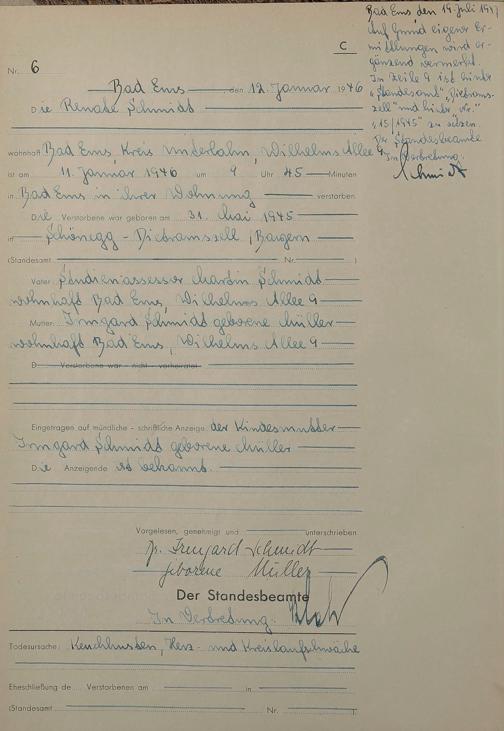 C
Nr. 6
Bad Ems den 12. Januar 1946
Die Renate Schmidt
wohnhaft Bad Ems, Kreis Unterlahn, Wilhelms Allee 9
ist am 11. Januar 1946 um 9 Uhr 45 Minuten
in Bad Ems in ihrer Wohnung verstorben.
Die Verstorbene war geboren am 31. Mai 1945
in Schönegg - Dietramszell, Bayern
(Standesamt Nr. )
Vater: Studienassessor Martin Schmidt
wohnhaft Bad Ems, Wilhelms Allee 9
Mutter: Irmgard Schmidt geborene Müller
wohnhaft Bad Ems, Wilhelms Allee 9
D Verstorbene war - nicht - verheiratet
Eingetragen auf mündliche - schriftliche Anzeige der Kindesmutter
Irmgard Schmidt geborene Müller
Die Anzeigende ist bekannt.
Vorgelesen, genehmigt und unterschrieben
Irmgard Schmidt
geborene Müller
Der Standesbeamte
In Vertretung:
Todesursache: Keuchhusten, Herz- und Kreislaufschwäche
Eheschließung de Verstorbenen am in
(Standesamt Nr. )
Bad Ems, den 14. Juli
Auf Grund eigener Er-
mittlungen wird er-
gänzend vermerkt.
In Zeile 9 ist hinter
"Standesamt" "Dietrams-
zell" und hinter "Nr."
"15/1945" zu setzen.
Der Standesbeamte
In Vertretung:
Schmidt